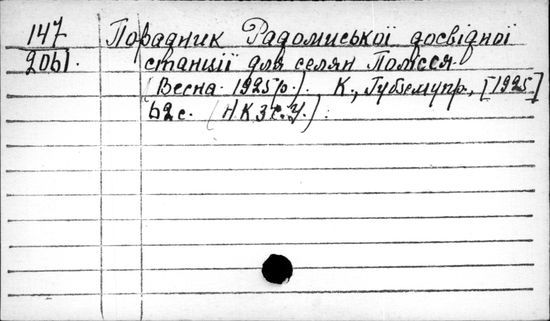 147 Порадник Радомиської досвідної
2061. станції для селян Полісся.
(Весна 1925 р.). К., Губземупр., [1925]
62 с. (НКЗС.У.).